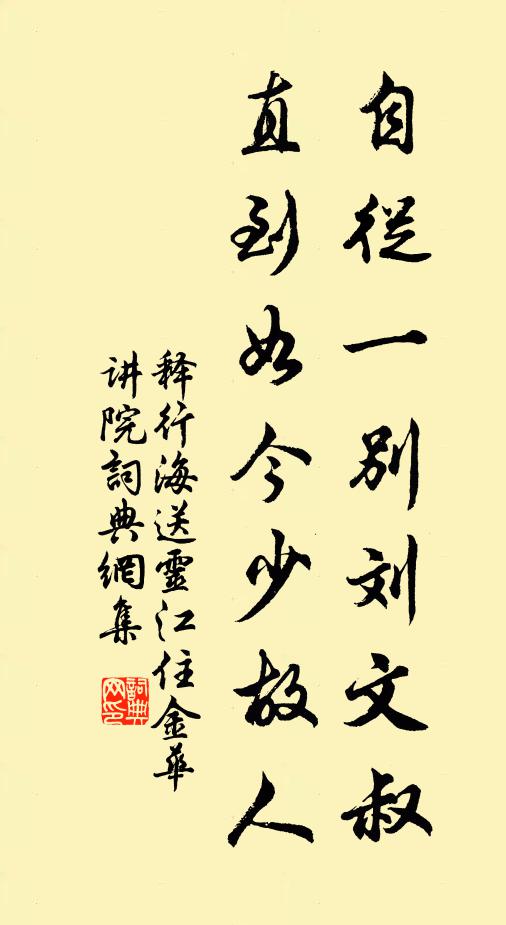 自從一别刘文叔
直到如今少故人
释行海送靈江住金華
讲院詞典網集
詞典网印